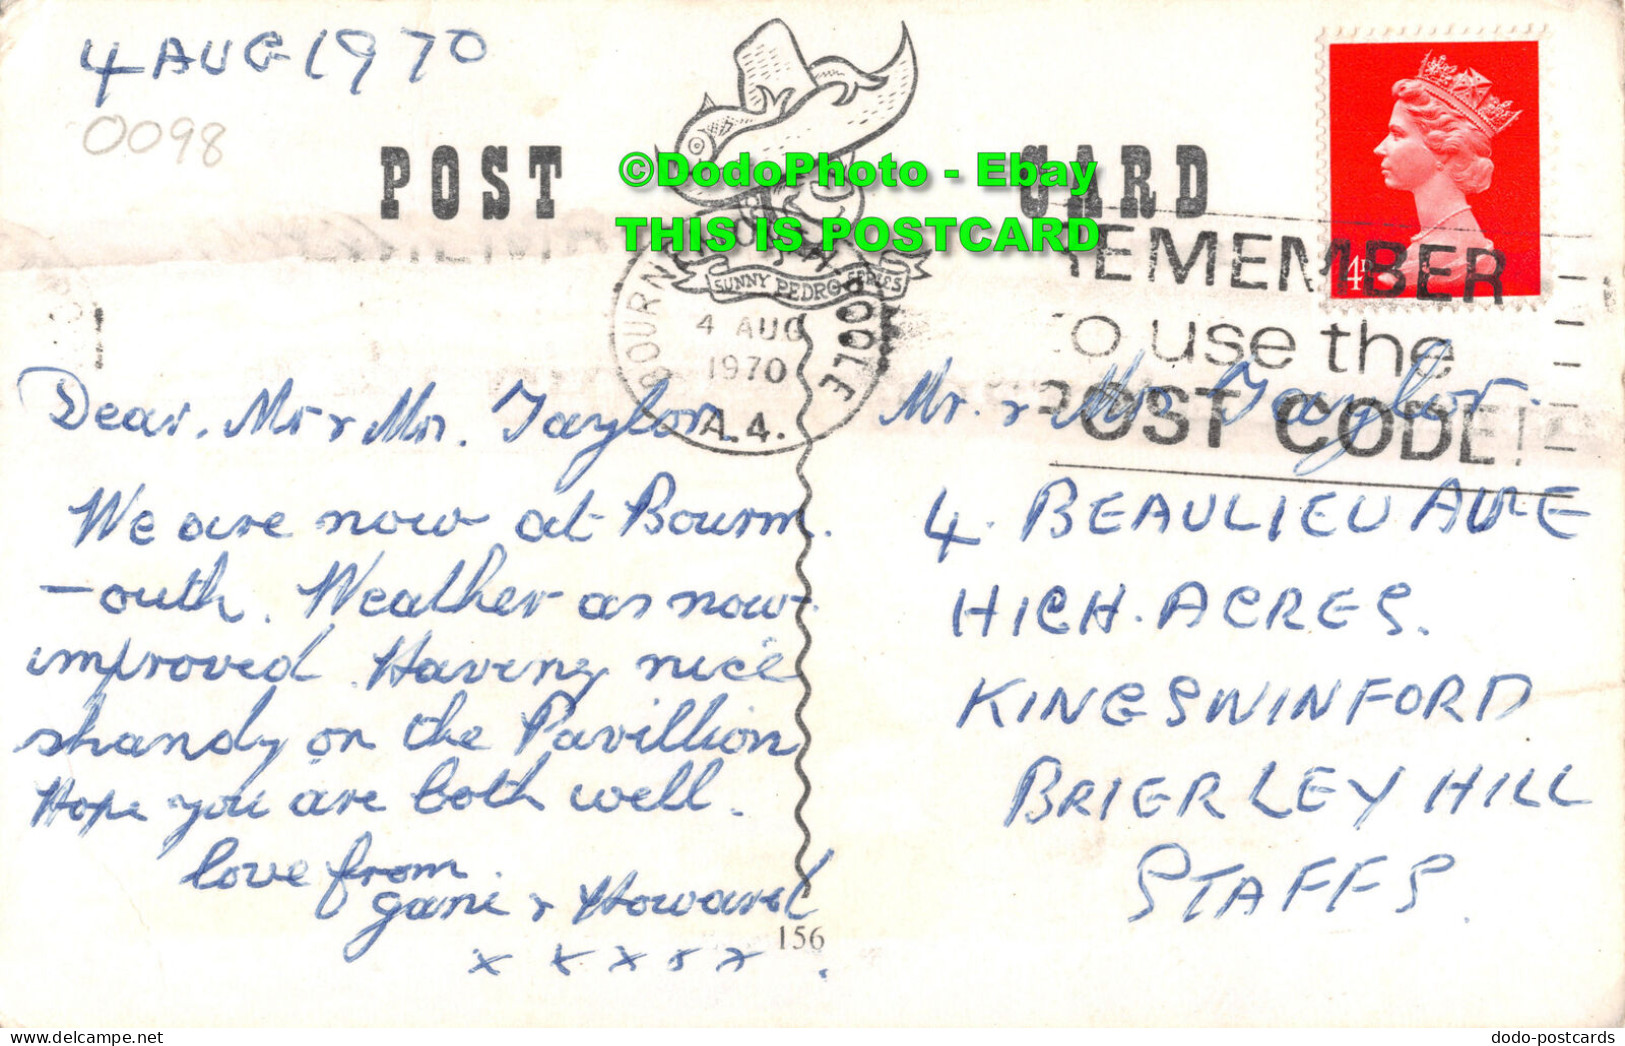 4 AUG 1970
0098
POST CARD
©DodoPhoto - Ebay
THIS IS POSTCARD
SUNNY PEDRO SERIES
BOURNEMOUTH POOLE
4 AUG
1970
A.4.
REMEMBER
to use the
POST CODE!
4D
Dear, Mr & Mrs. Taylor.
We are now at Bourm.
-outh. Weather as now
improved. Having nice
shandy on the Pavillion
Hope you are both well.
love from.
Jane & Howard
x x x x x .
156
Mr. & Mrs Taylor.
4. BEAULIEU AVRE
HIGH. ACRES.
KINGSWINFORD
BRIERLEY HILL
STAFFS.
dodo-postcards